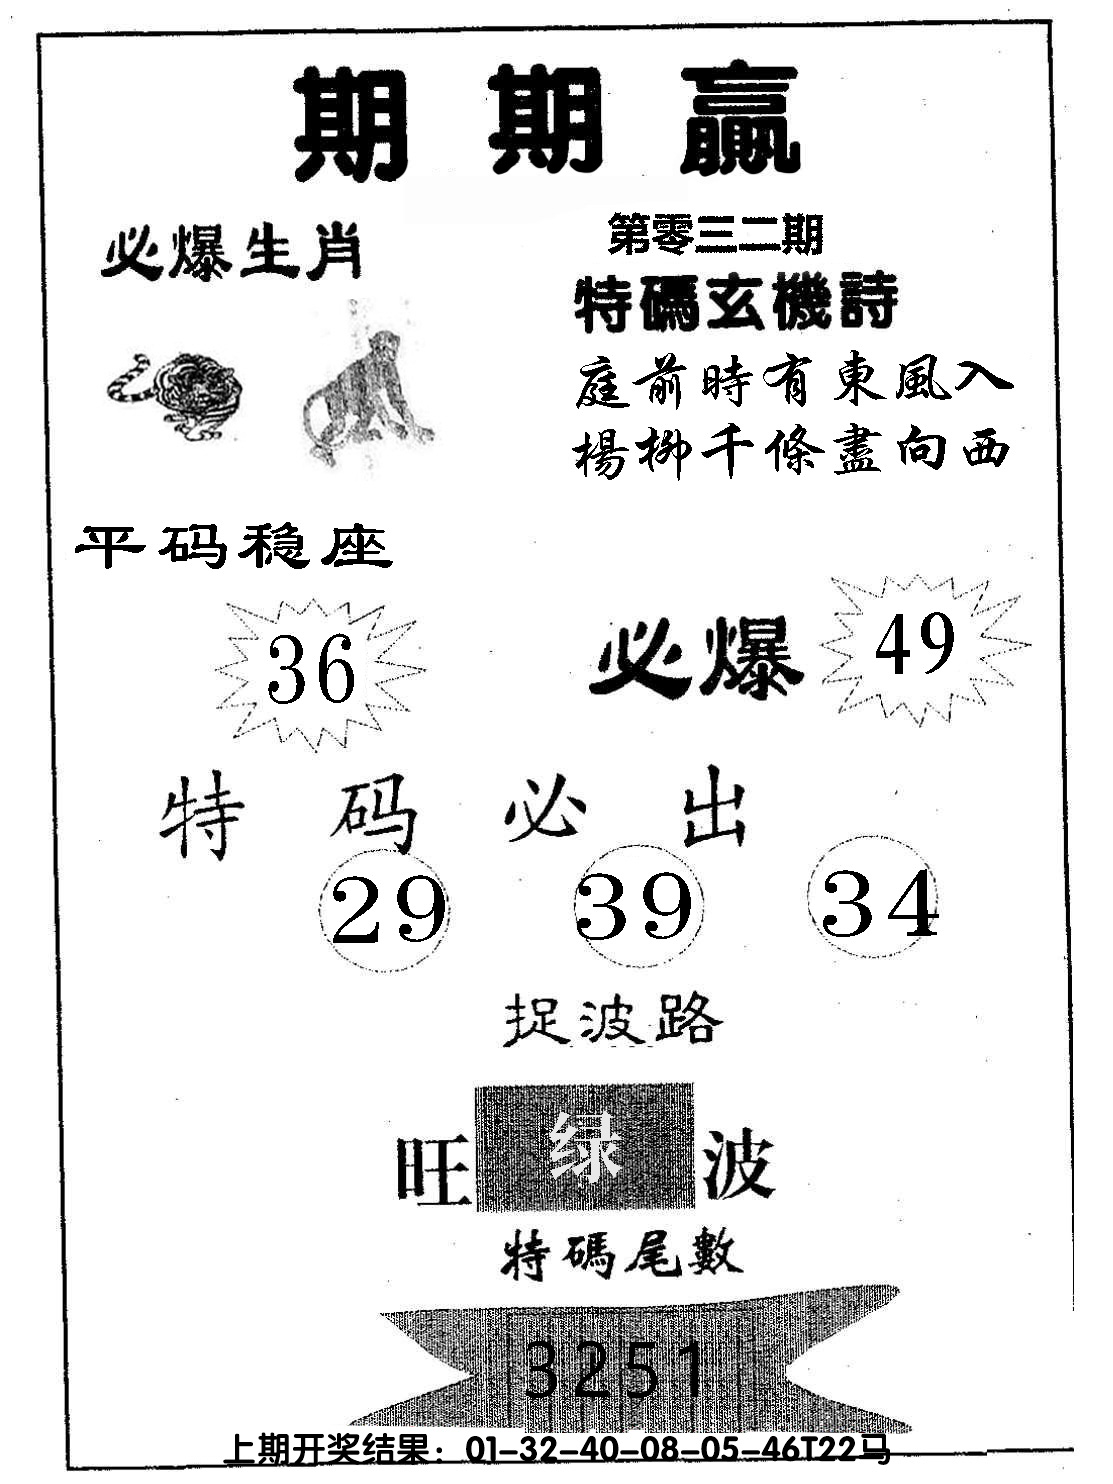 期期贏
必爆生肖
第零三二期
特碼玄機詩
庭前時有東風入
楊柳千條盡向西
平码稳座
36
必爆 49
特码必出
29 39 34
捉波路
旺 绿 波
特碼尾數
3251
上期开奖结果：01-32-40-08-05-46T22马